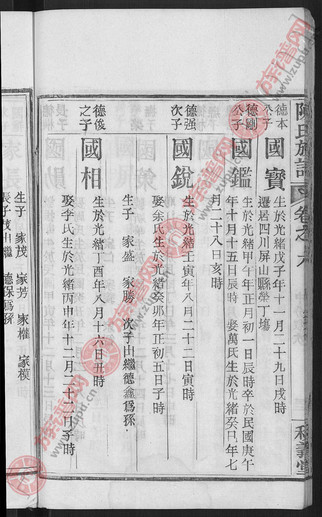 陳氏族譜 卷之八
德本
公子
國寶 生於光緒戊子年十一月二十九日戌時
遷居四川屏山縣
德剛
公子
國鑑 生於光緒甲午年正月初一日辰時卒於民國庚午
年十月十五日辰時 娶萬氏生於光緒癸巳年七
月二十八日亥時
德強
次子
國銳 生於光緒壬寅年八月二十二日寅時
娶余氏生於光緒癸卯年正初五日子時
生子 家盛 家勝 次子山繼德鑫爲孫
德俊
之子
國相 生於光緒丁酉年八月十六日丑時
娶李氏生於光緒丙申年十二月二十六日子時
生子 家茂 家芳 家權 家模
長子茂山繼 德保爲孫
族譜网
www.zupu.cn